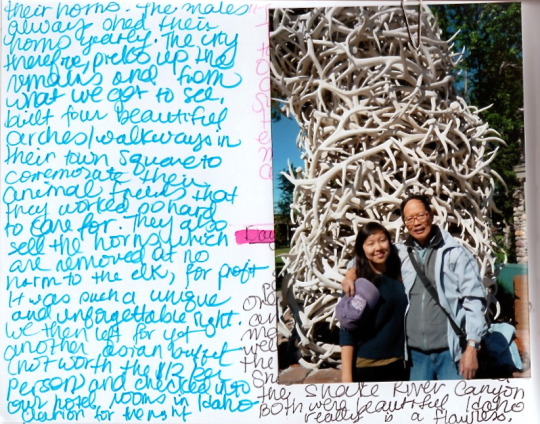 their horns. The males
always shed their
horns yearly. The city
therefore, picks up the
remains and from
what we got to see,
built four beautiful
arches/walkways in
their town square to
comemorate their
animal friends that
they worked so hard
to care for. They also
sell the horns, which
are removed at no
harm to the elk, for profit
It was such a unique
and unforgettable sight.
We then left for yet
another asian buffet
(not worth the $12 per
person) and checked into
our hotel rooms in Idaho
for the night
Day
the
the Snake River Canyon
Both were beautiful. Idaho
really is a flawless.